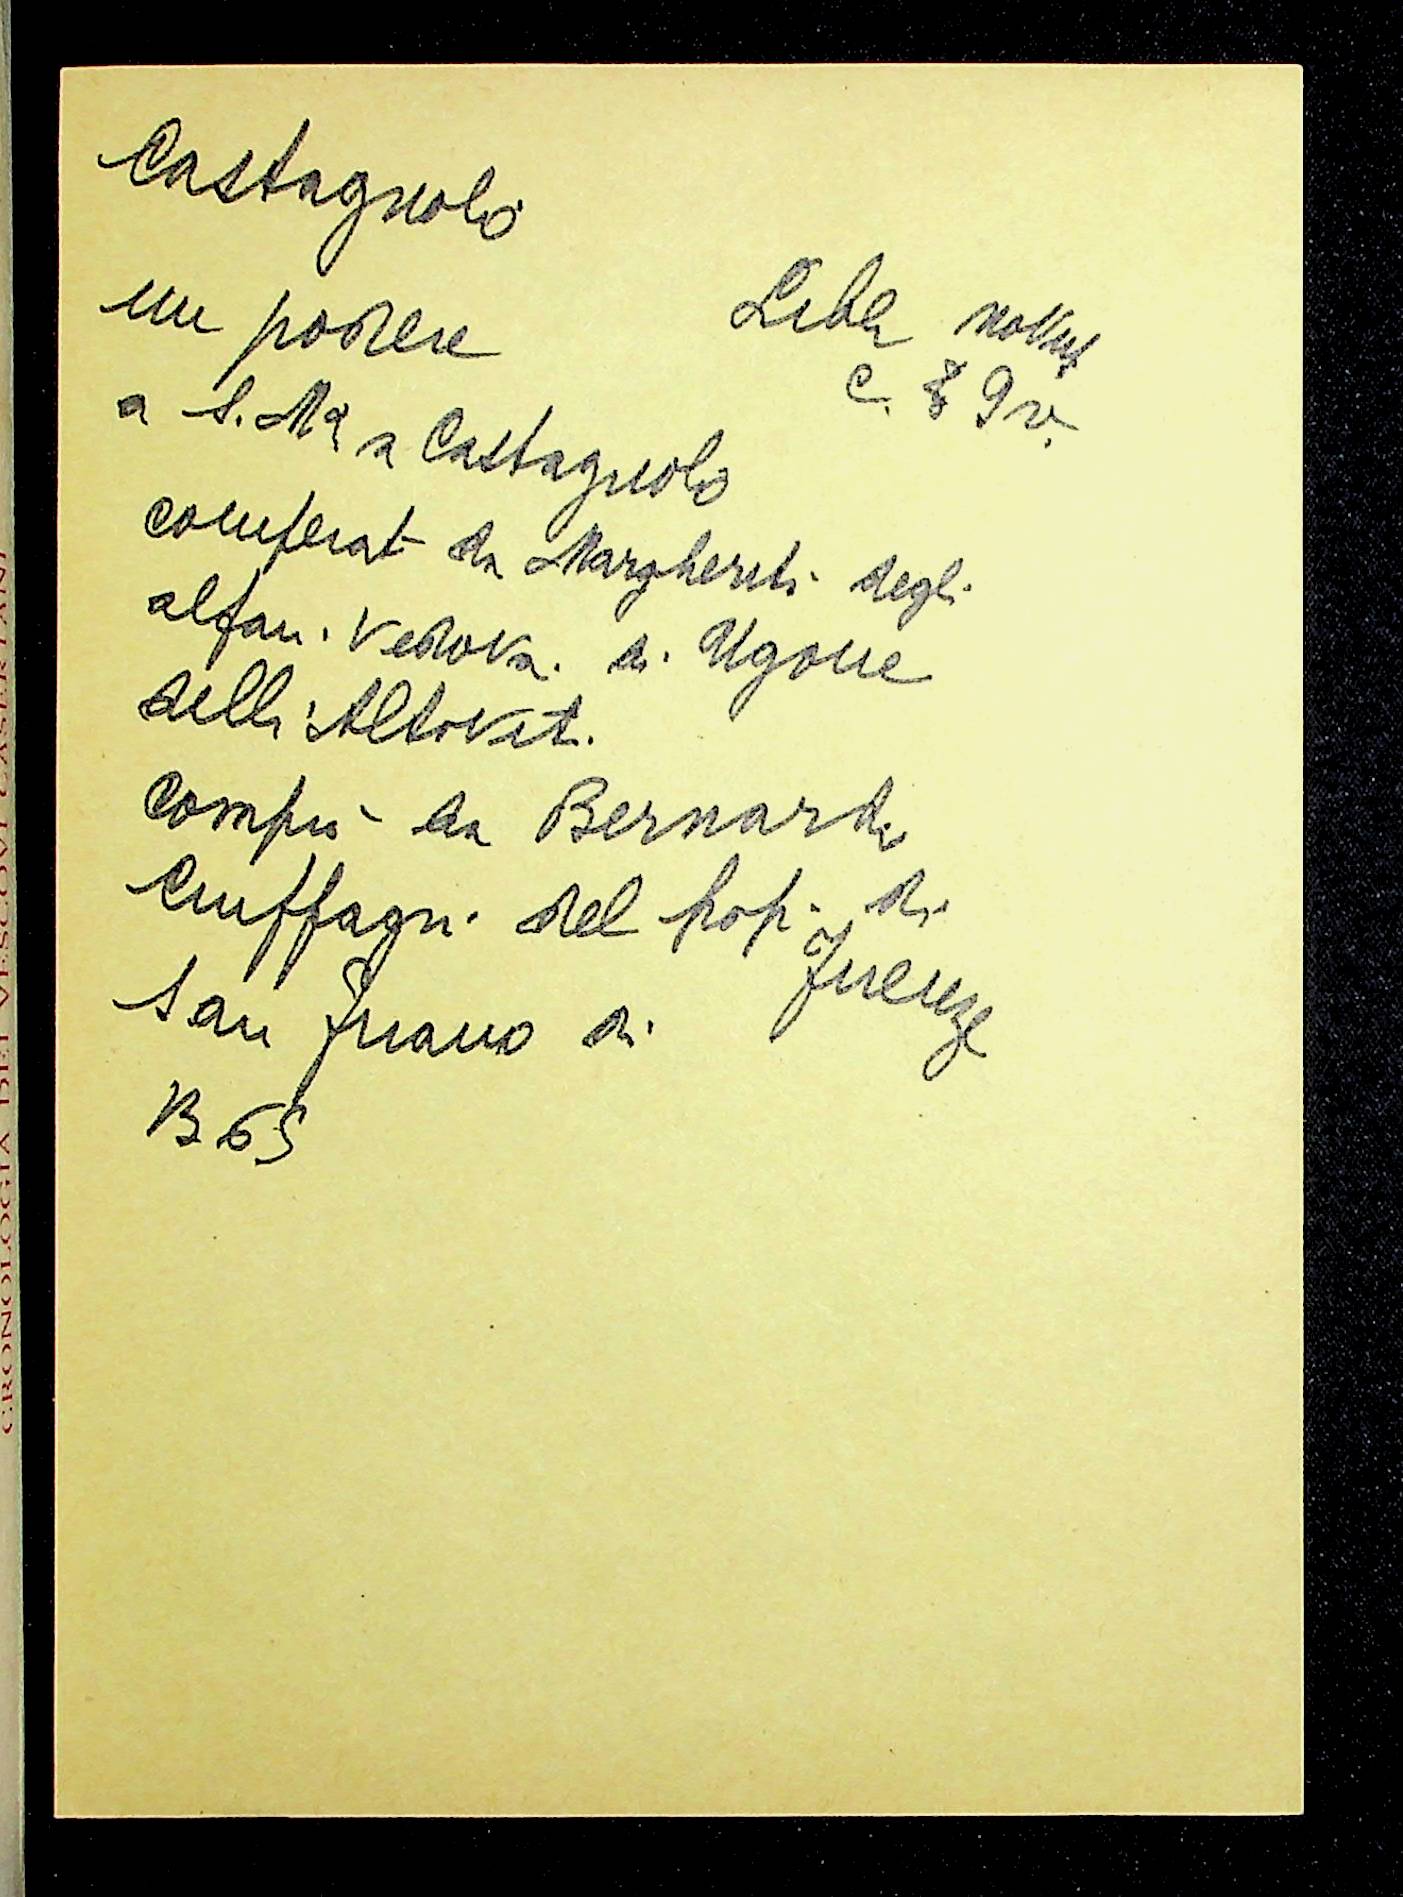 Castagnolo
un podere
Libr
c. 9 v.
a S. Mª a Castagnolo
comperat da Margherita degli
alfani vedova di Ugone
delli Altoviti
comprò da Bernardo
Ciuffagni del pop. di
San Friano di Firenze
B 65
CRONOLOGIA DEI VESCOVI CASERTANI